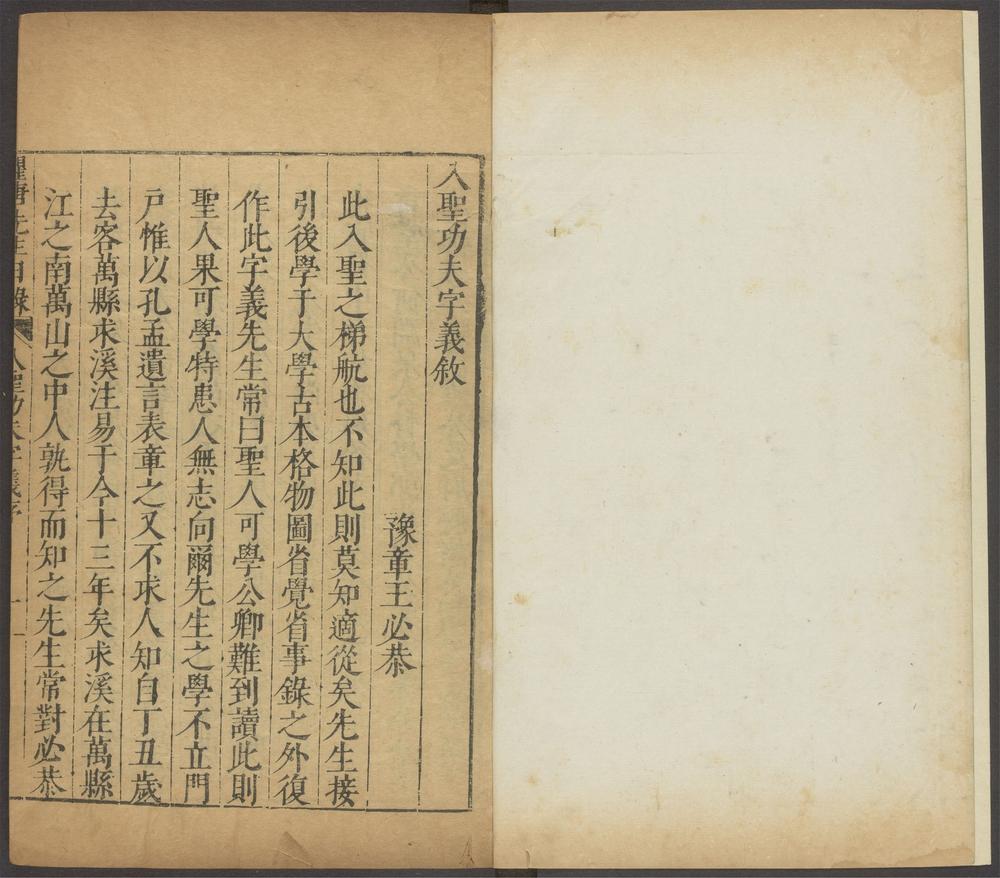 入聖功夫字義敘
豫章王必恭
此入聖之梯航也不知此則莫知適從矣先生接
引後學于大學古本格物圖省覺省事錄之外復
作此字義先生常曰聖人可學公卿難到讀此則
聖人果可學特患人無志向爾先生之學不立門
戶惟以孔孟遺言表章之又不求人知自丁丑歲
去客萬縣求溪注易于今十三年矣求溪在萬縣
江之南萬山之中人孰得而知之先生常對必恭
瞿唐先生日錄 入聖功夫字義序 一